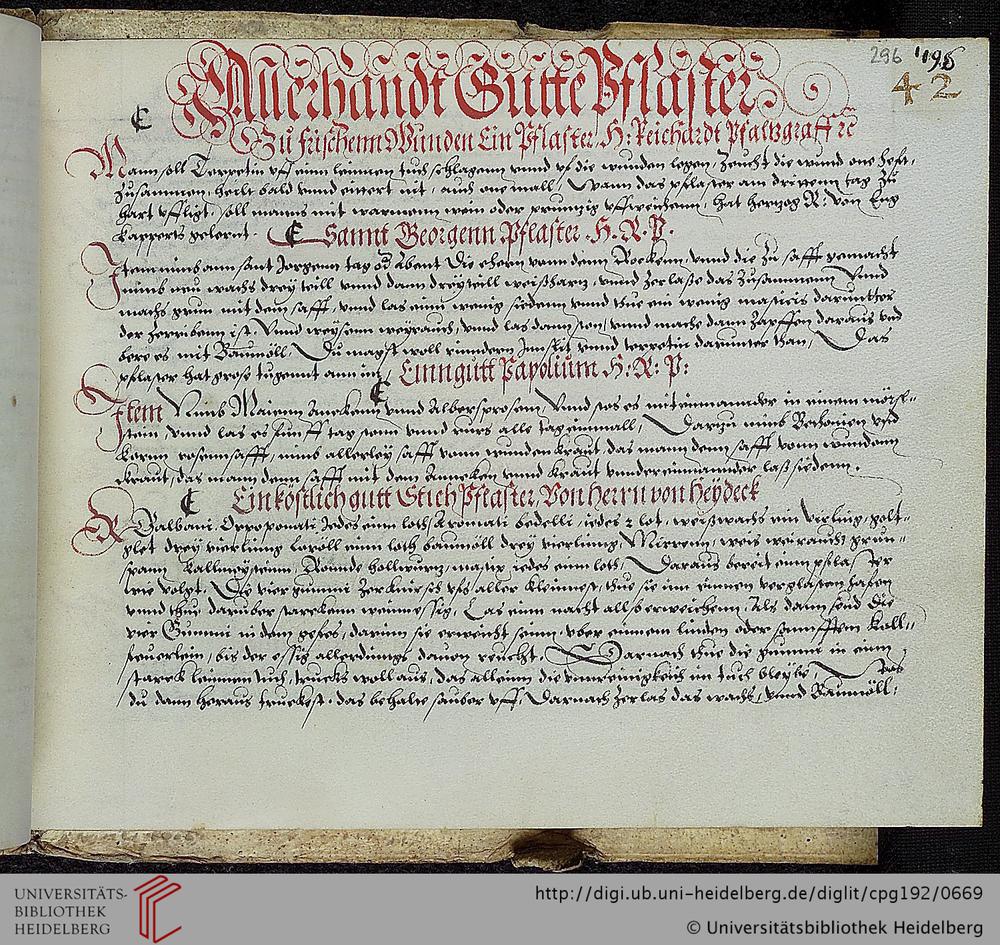 296 196
42
Allerhandt Gutte Pflaster
Zu frischenn Wunden Ein Pflaster H: Reichardt Pfaltzgraff ꝛc
Mann soll Terpetin vff einn leinnen tuch schlagenn vnnd vf die wunden legen, Zeucht die wund one heft,
Zusammen, heilt bald vnnd eittert nit, auch one mall, Wann das pflaster am dritten tag Zu
hart vffligt, soll manns mit warmenn wein oder vffweichenn, hat hertzog R: von Eng
kapperts gelernt. Sannt Georgenn Pflaster. H. R. P.
Item nimb ann sant Jorgenn tag Abent die ehern vonn denn Rockenn, vnnd die Zu safft gemacht
nimb neu wachs drey teill vnnd dann drey teill weißhartz, vnnd Zerlasse das Zusammenn, Vnnd
machs grun mit dem safft, vnnd las einn wenig siedenn vnnd thue ein wenig masticis daruntter
der Zerribenn ist, Vnnd weyssenn weyrauch, vnnd las dann sten, vnnd mache dann Zapffen daraus vnd
bere es mit Baumöll, Du magst woll rindern Innslit vnnd terpetin darunter than, Das
pflaster hat grosse tugennt ann im, Einn gutt Papolium H: R: P:
Item Nimb Maienn Anckenn vnnd Albersprossen, Vnnd stos es mit einnannder in einem mörs-
stein, vnnd las es funff tag stenn vnnd rurs alle tag einmall, Darzu nimb Bethonien vnd
kernn rosenn safft, nimb allerley safft vonn wunden kraut, das mann denn safft vonn wundenn
kraut, das mann denn safft mit dem Ancken vnnd kraut vndereinnannder lass siedenn.
Ein köstlich gutt Stich Pflaster, Von Herrn von Heydeck
℞ Galbani. Oppoponati Jedes einn loth, Armoniaci bedelli, iedes 2 lot, weißwachs ein virling, golt-
glet drey vierling Loröll einn loth baumöll drey vierling, Mirrenn, weis weirauch, grun-
spann Kallmeysteinn, Runde hollwurtz, mastix iedes einn loth, Daraus bereit einn pflaster
wie volgt, Die vier gummi Zerknirsch vfs aller kleinnest, thue sie inn einnen verglasten hafen
vnnd thue daruber starckenn weinnessig, Las einn nacht allso erweichenn, Als dann seud die
vier Gummi in dem gefes, darinn sie erweicht seinn, vber einnem linden oder sannfftem Koll-
feuerlein, bis der essig allerdinngs dauon reucht, Darnach thue die gummi in einn
starck leinnen tuch, trucks woll aus, das alleinn die vnnreinigkeit im tuch bleybe, Was
du dann heraus truckest, das behalte sauber vff, Darnach Zerlas das wachs, vnnd Baumöll,
UNIVERSITÄTS-
BIBLIOTHEK
HEIDELBERG
http://digi.ub.uni-heidelberg.de/diglit/cpg192/0669
© Universitätsbibliothek Heidelberg